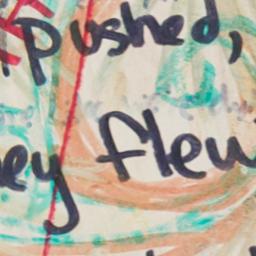 pushed,
ey flew